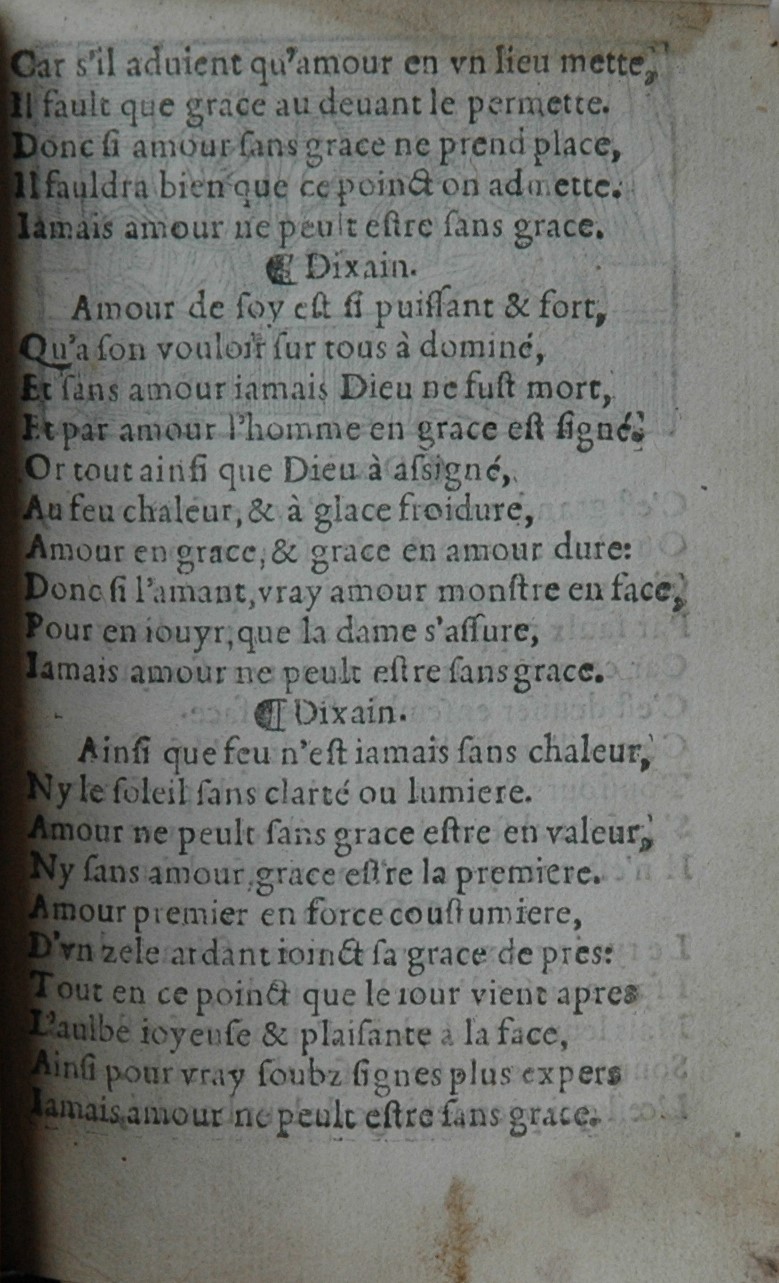 Car s'il aduient qu'amour en vn lieu mette,
Il fault que grace au deuant le permette.
Donc ſi amour ſans grace ne prend place,
Il fauldra bien que ce poinct on admette.
Iamais amour ne peult eſtre ſans grace.
¶ Dixain.
Amour de ſoy eſt ſi puiſſant & fort,
Qu'a ſon vouloir ſur tous à dominé,
Et ſans amour iamais Dieu ne fuſt mort,
Et par amour l'homme en grace eſt ſigné.
Or tout ainſi que Dieu à aſsigné,
Au feu chaleur, & à glace froidure,
Amour en grace, & grace en amour dure:
Donc ſi l'amant, vray amour monſtre en face,
Pour en iouyr, que la dame s'aſſure,
Iamais amour ne peult eſtre ſans grace.
¶ Dixain.
Ainſi que feu n'eſt iamais ſans chaleur,
Ny le ſoleil ſans clarté ou lumiere.
Amour ne peult ſans grace eſtre en valeur,
Ny ſans amour, grace eſtre la premiere.
Amour premier en force couſtumiere,
D'vn zele ardant ioinct ſa grace de pres:
Tout en ce poinct que le iour vient apres
L'aulbe ioyeuſe & plaiſante a la face,
Ainſi pour vray ſoubz ſignes plus expers
Iamais amour ne peult eſtre ſans grace.